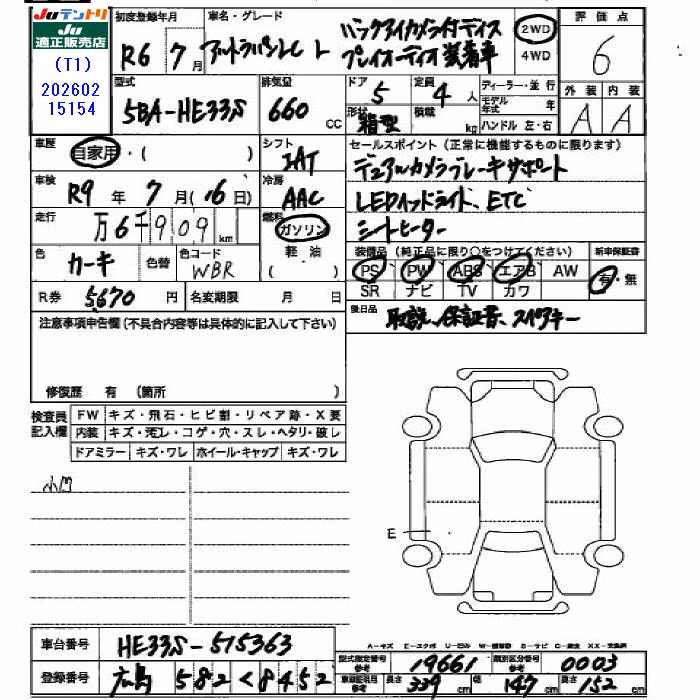 JUテントリ
JU
適正販売店
(T1)
202602
15154
初度登録年月
R6 7月
車名・グレード
アルトラパンLC L
バックアイカメラ付ディス
プレイオーディオ装着車
2WD
4WD
評価点
6
外装 内装
A A
型式
5BA-HE33S
排気量
660 cc
ドア 5
定員 4人
形状 箱型
積載 kg
ディーラー・並行
モデル年式 年
ハンドル 左・右
車歴
自家用・( )
シフト
IAT
セールスポイント(正常に機能するものに限ります)
デュアルカメラブレーキサポート
LEDヘッドライト、ETC
シートヒーター
車検
R9年 7月(16日)
冷房
AAC
走行
万6千909km
燃料
ガソリン
軽・油
( )
色
カーキ
色替
色コード
WBR
装備品(純正品に限り○をつけてください)
PS PW ABS エアB AW
SR ナビ TV カワ
新車保証書
有・無
R券 5670円
名変期限 月 日
後日品
取説、保証書、スペアキー
注意事項申告欄(不具合内容等は具体的に記入して下さい)
修復歴 有(箇所 )
検査員
記入欄
FW キズ・飛石・ヒビ割・リペア跡・X要
内装 キズ・汚レ・コゲ・穴・スレ・ヘタリ・破レ
ドアミラー キズ・ワレ ホイール・キャップ キズ・ワレ
E
車台番号
HE33S-515363
登録番号
広島 582 く8452
型式指定番号
参考
19661
類別区分番号
参考
0003
車輌証明月
参考
長さ 339cm
幅 147cm
高さ 152cm